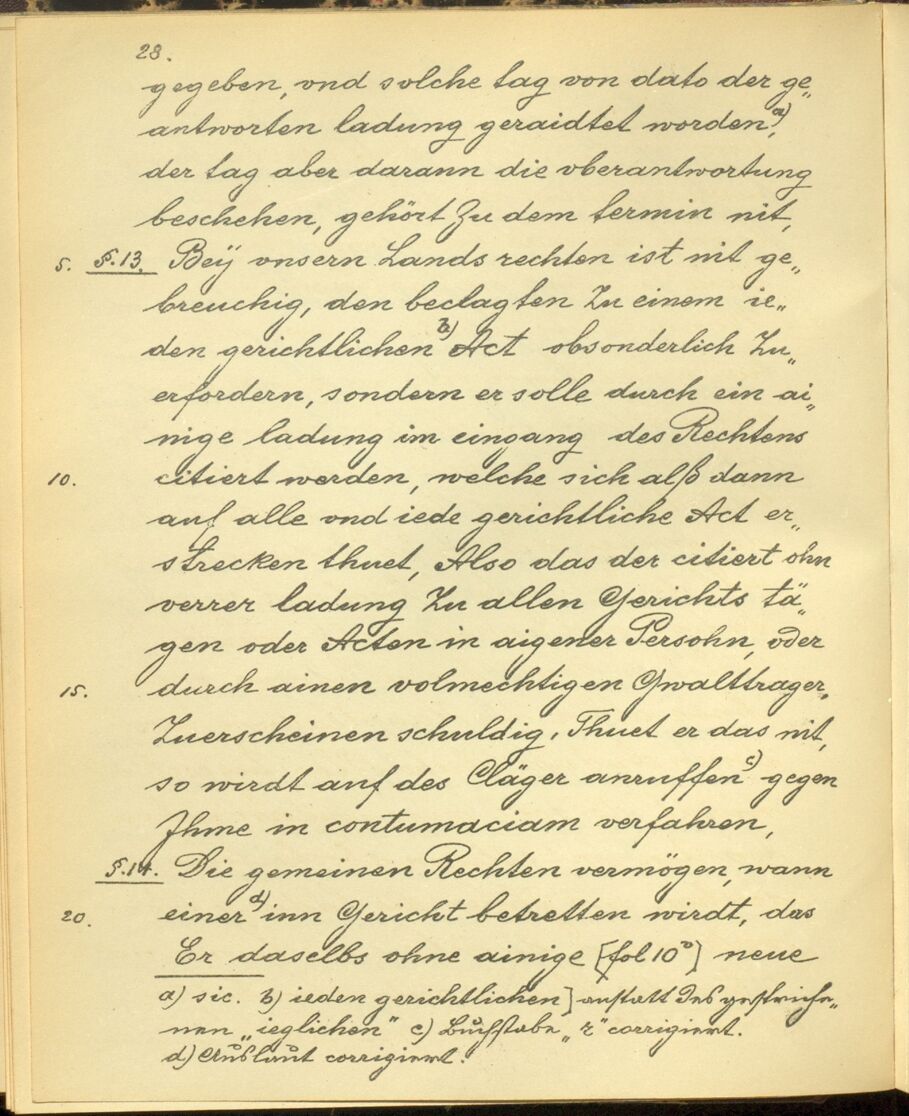 28.
gegeben, vnd solche tag von dato der ge„
antworten ladung geraidtet worden a),
der tag aber darann die vberantwortung
beschehen, gehört Zu dem termin nit,
5. §.13. Beÿ vnsern Lands rechten ist nit ge„
breuchig, den beclagten Zu einem ie„
den gerichtlichen b) Act obsonderlich Zu„
erfordern, sondern er solle durch ein ai„
nige ladung im eingang des Rechtens
10. citiert werden, welche sich alß dann
auf alle vnd iede gerichtliche Act er„
strecken thuet, Also das der citiert ohn
verrer ladung Zu allen Gerichts tä„
gen oder Acten in aigener Persohn, oder
15. durch ainen volmechtigen Gwalttrager,
Zuerscheinen schuldig, Thuet er das nit,
so wirdt auf des Cläger anruffen c) gegen
Jhme in contumaciam verfahren,
§.14. Die gemeinen Rechten vermögen, wann
20. einer d) inn Gericht betretten wirdt, das
Er daselbs ohne ainige [fol 10ᵛ] neue
a) sic. b) ieden gerichtlichen] anstatt des gestriche„
nen „ieglichen" c) Buchstabe „r" corrigiert.
d) Auslaut corrigiert.